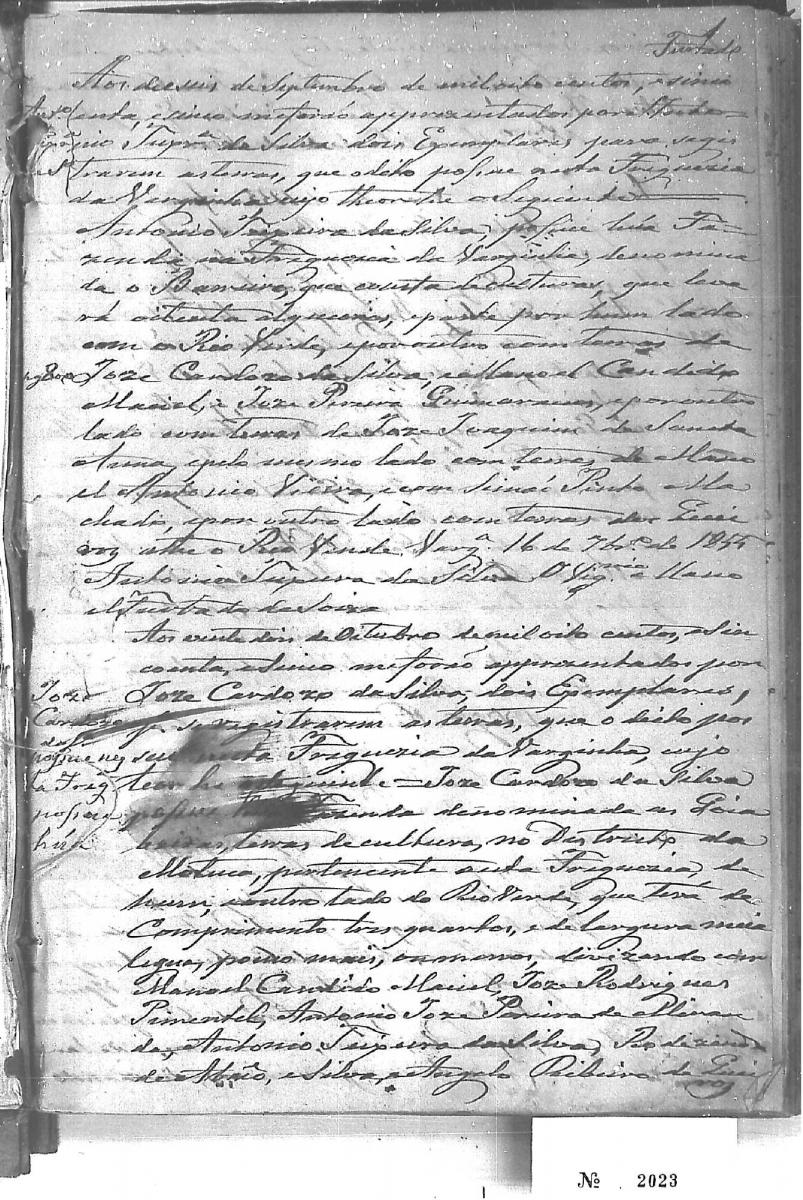 Furtado
Aos deseseis de Septembro de mil oito centos, e sinco
enta, e sinco me forão apprezentados por Antonio
Teixra da Silva dois Exemplares para regis
trarem as terras, que o dito possue nesta Freguezia
da Varginha cujo theor he o seguinte
Antonio Teixeira da Silva, possue huã Fa
zenda na Freguezia da Varginha, denomina
da o Barreiro, que consta de culturas, que leva
rá oitenta alqueires, e parte por hum lado
com o Rio Verde, e por outro com terras de
Joze Cardozo da Silva, e Manoel Candido
Maciel, e Joze Pereira Guimaraens, e por outro
lado com terras de Joze Joaquim de Santa
Anna, e pelo mesmo lado com terras de Mano
el Antonio Vieira, e com Simaõ Pinto Ma
chado, e por outro lado com terras dos Quei
roz athe o Rio Verde. Varga 16 de 7bro de 1855
Antonio Teixeira da Silva O Vigrio Mano
el Furtado de Soiza
Aos vente dois de Oitubro de mil oito centos, e sin
coenta, e sinco me forão apprezentados por
Joze Cardozo da Silva, dois Exemplares,
pa se registrarem as terras, que o dito pos
sue nesta Freguezia da Varginha, cujo
teor he o seguinte = Joze Cardozo da Silva
possue huã Fazenda denominada as Goia
beiras, terras de cultura, no Districto da
Mutuca, pertencente a esta Freguezia, de
hum, e outro lado do Rio Verde, que terá de
Comprimento tres quartos, e de largura meia
legua, pouco mais, ou menos, divizando com
Manoel Candido Maciel, Joze Rodrigues
Pimentel, Antonio Joze Pereira de Miran
da, Antonio Teixeira da Silva,
de Abreo, e Silva, e Angelo Ribeiro de Quei
roz
Joze
Cardozo
da S.
possue nes
ta Fregª
possue
huã
Nº 2023